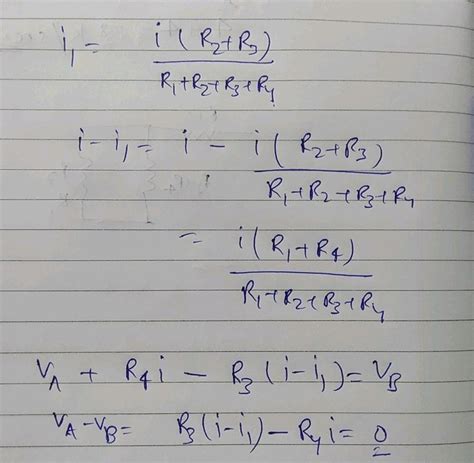 i₁ = i(R₂+R₃) / R₁+R₂+R₃+R₄
i-i₁ = i - i(R₂+R₃) / R₁+R₂+R₃+R₄
= i(R₁+R₄) / R₁+R₂+R₃+R₄
V_A + R₄i - R₃(i-i₁) = V_B
V_A-V_B = R₃(i-i₁) - R₄i = 0